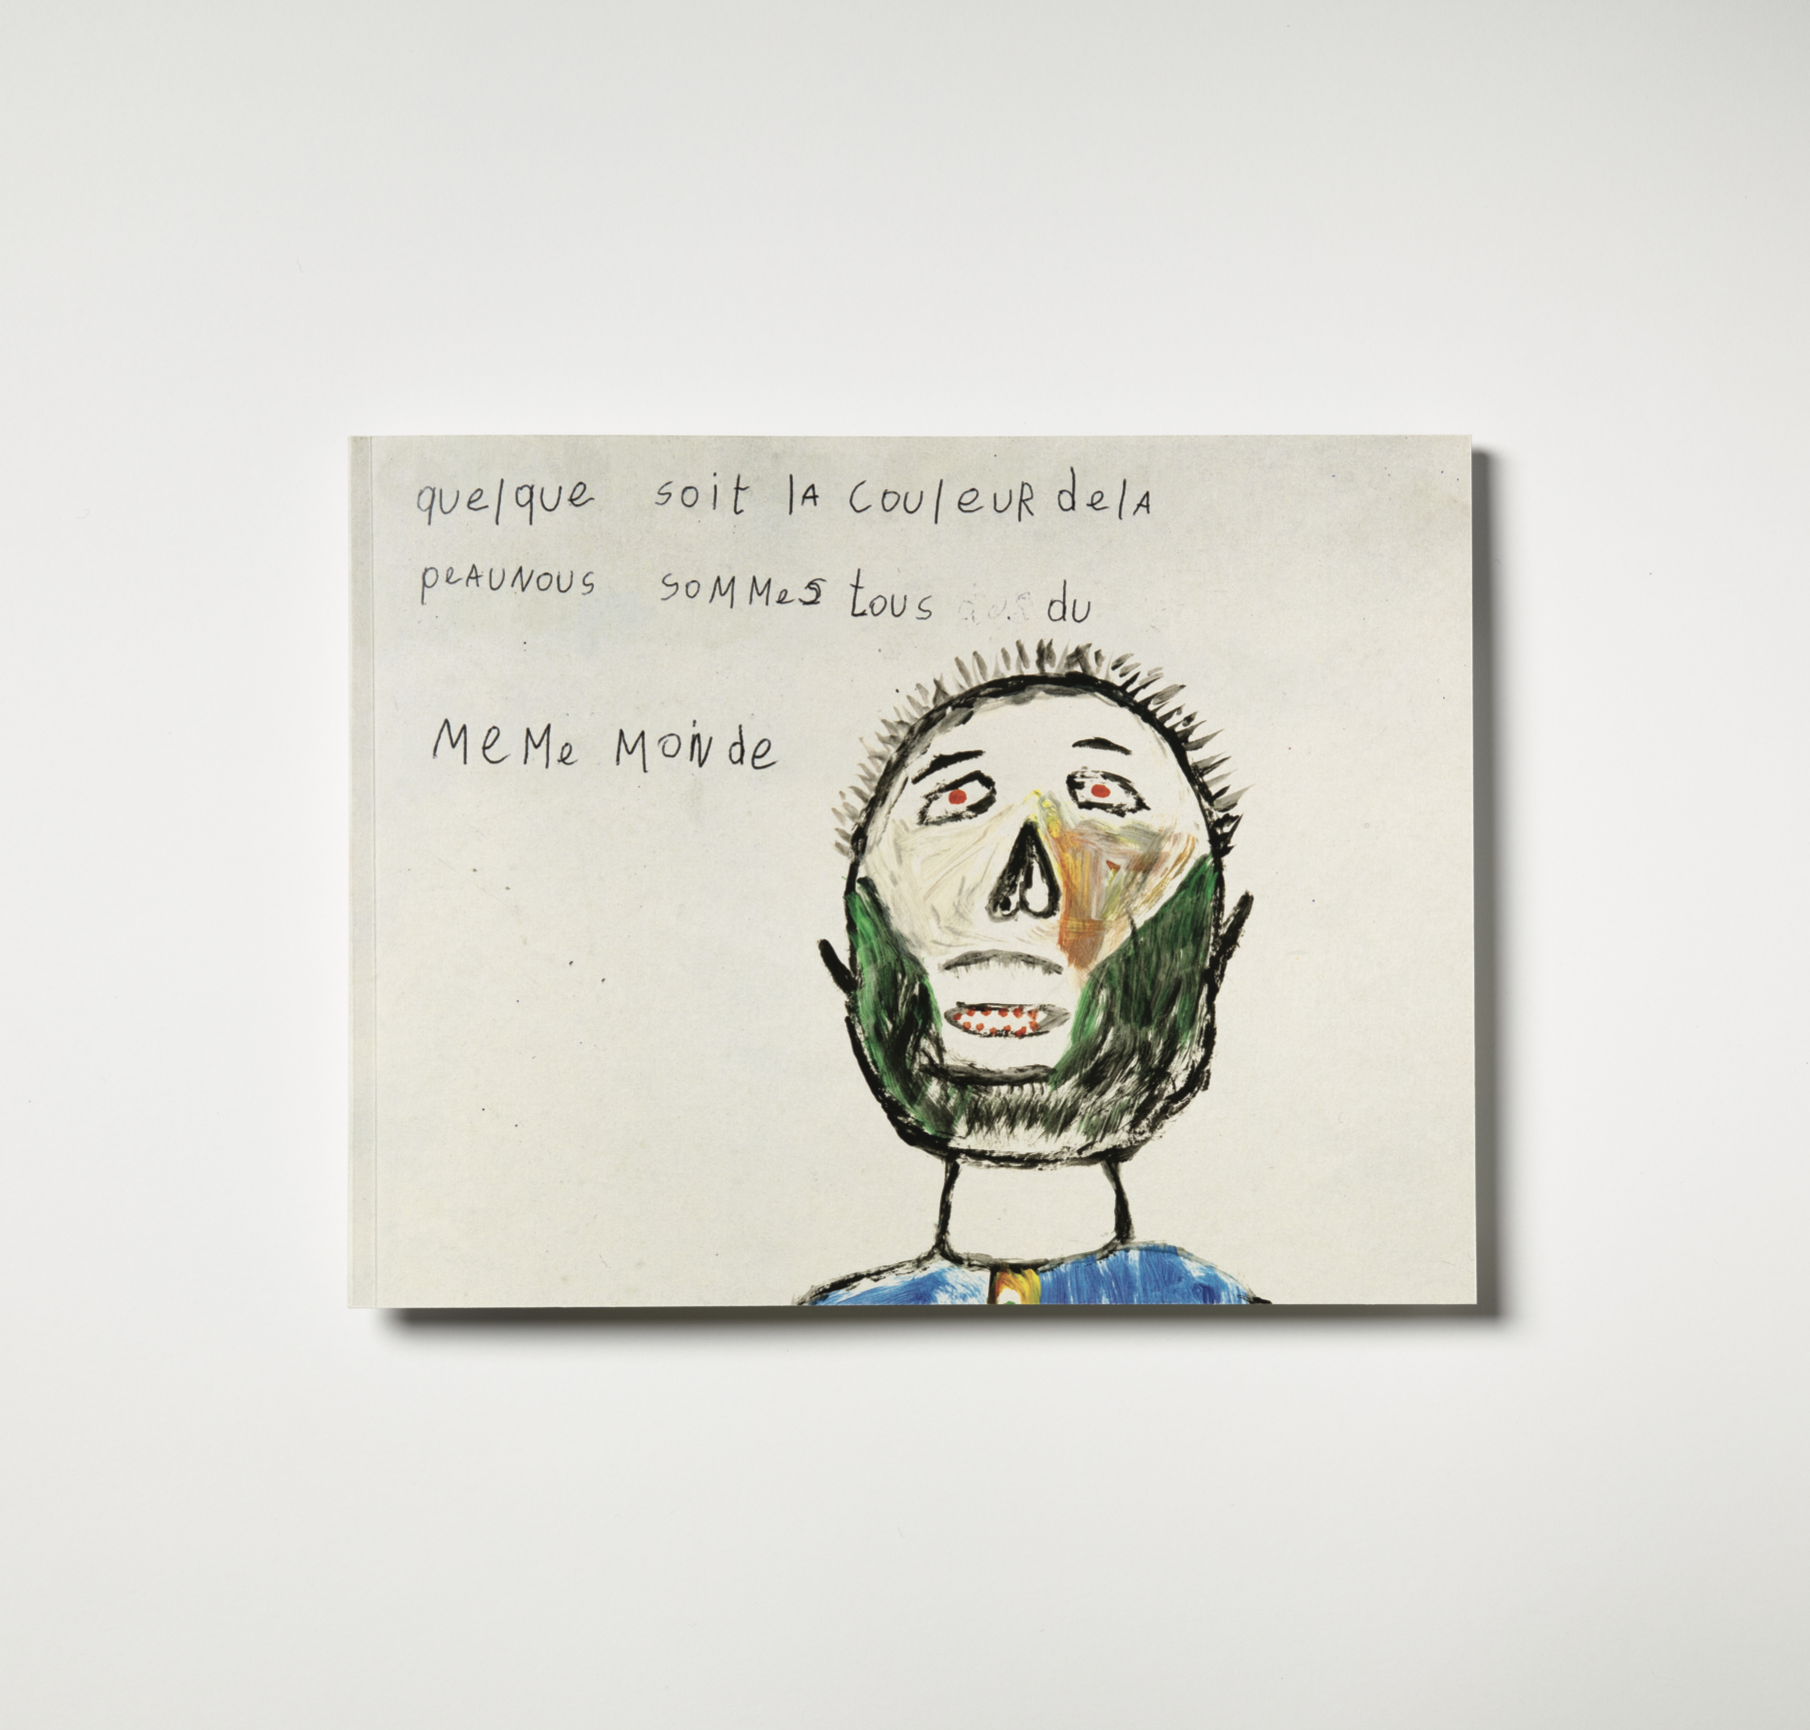 quelque soit lA couleuR delA
peAuNous soMMes tous du
MeMe MoNde